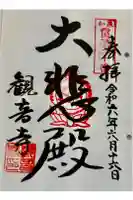 奉拝
令和六年六月十六日
大悲殿
観音寺